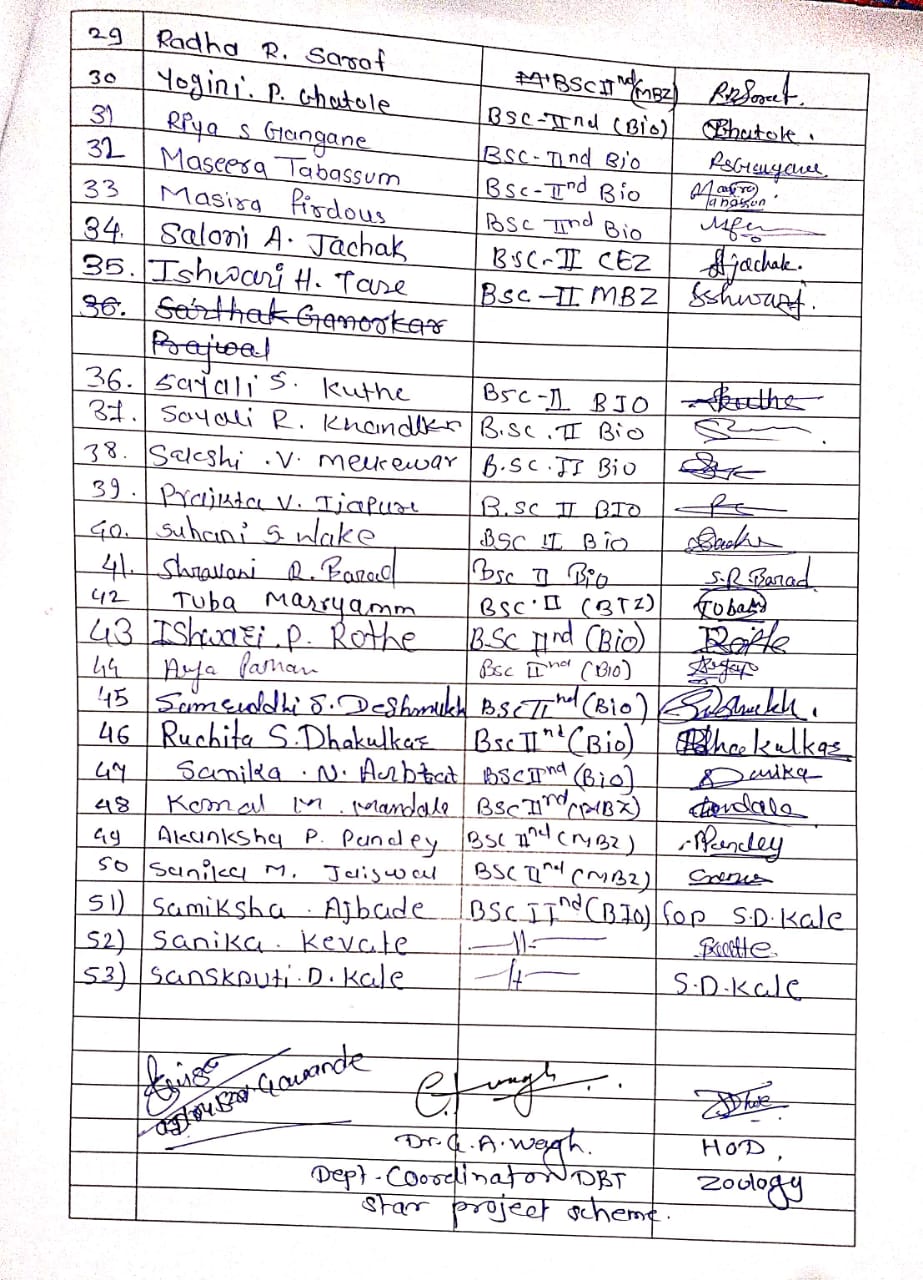 29 Radha R. Saraf BSC IInd (MBZ)
30 Yogini. P. Ghatole BSC-IInd (Bio)
31 Riya S Gangane BSC-IInd Bio
32 Maseera Tabassum BSC-IInd Bio
33 Masira firdous BSC IInd Bio
34. Saloni A. Jachak BSC-II CEZ Ajachak.
35. Ishwari H. Tare BSC-II MBZ Ishwari.
36. Sarthak Ganorkar
Prajwal
36. Sayali S. Kuthe BSC-II BIO Kuthe
37. Sayali R. Khandkr B.SC. II Bio
38. Sakshi .V. Melkewar B.SC. II Bio
39. Prajkta V. Ijapure B.SC II BIO
40. Suhani S Wake BSC II Bio
41. Shravani R. Barad BSC II Bio S.R Barad
42 Tuba Marryamm BSC.II (BTZ) Tuba
43 Ishwari .P. Rothe BSC IInd (Bio) Rothe
44 Arya BSC IInd (BIO)
45 Samruddhi S. Deshmukh BSC IInd (Bio)
46 Ruchita S.Dhakulkar BSC IInd (Bio)
47 Sanika .N. BSC IInd (Bio) Sanika
48 Komal M. Mandale BSC IInd (MBZ)
49 Akanksha P. Pandey BSC IInd (MBZ) Pandey
50 Sanika M. Jaiswal BSC IInd (MBZ)
51) Samiksha . Ajbade BSC IInd (BIO) for S.D.Kale
52) Sanika. Kevate —11—
53) Sanskruti.D. Kale —11— S.D.Kale
Gawande
Dr. G. A. Wagh. HOD,
Dept-Coordinator DBT Zoology
Star project scheme.